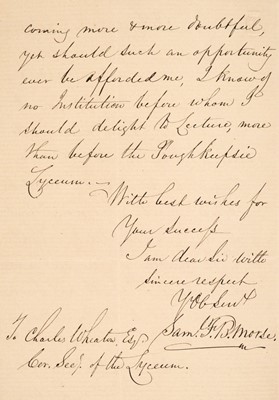 coming more & more doubtful,
yet should such an opportunity
ever be afforded me, I know of
no Institution before whom I
should delight to Lecture, more
than before the Poughkeepsie
Lyceum.—
With best wishes for
Your Success
I am dear Sir with
sincere respect
Yr Ob Servt
Sam. F. B. Morse.
To Charles Wheaton Esq.
Cor. Secy. of the Lyceum.